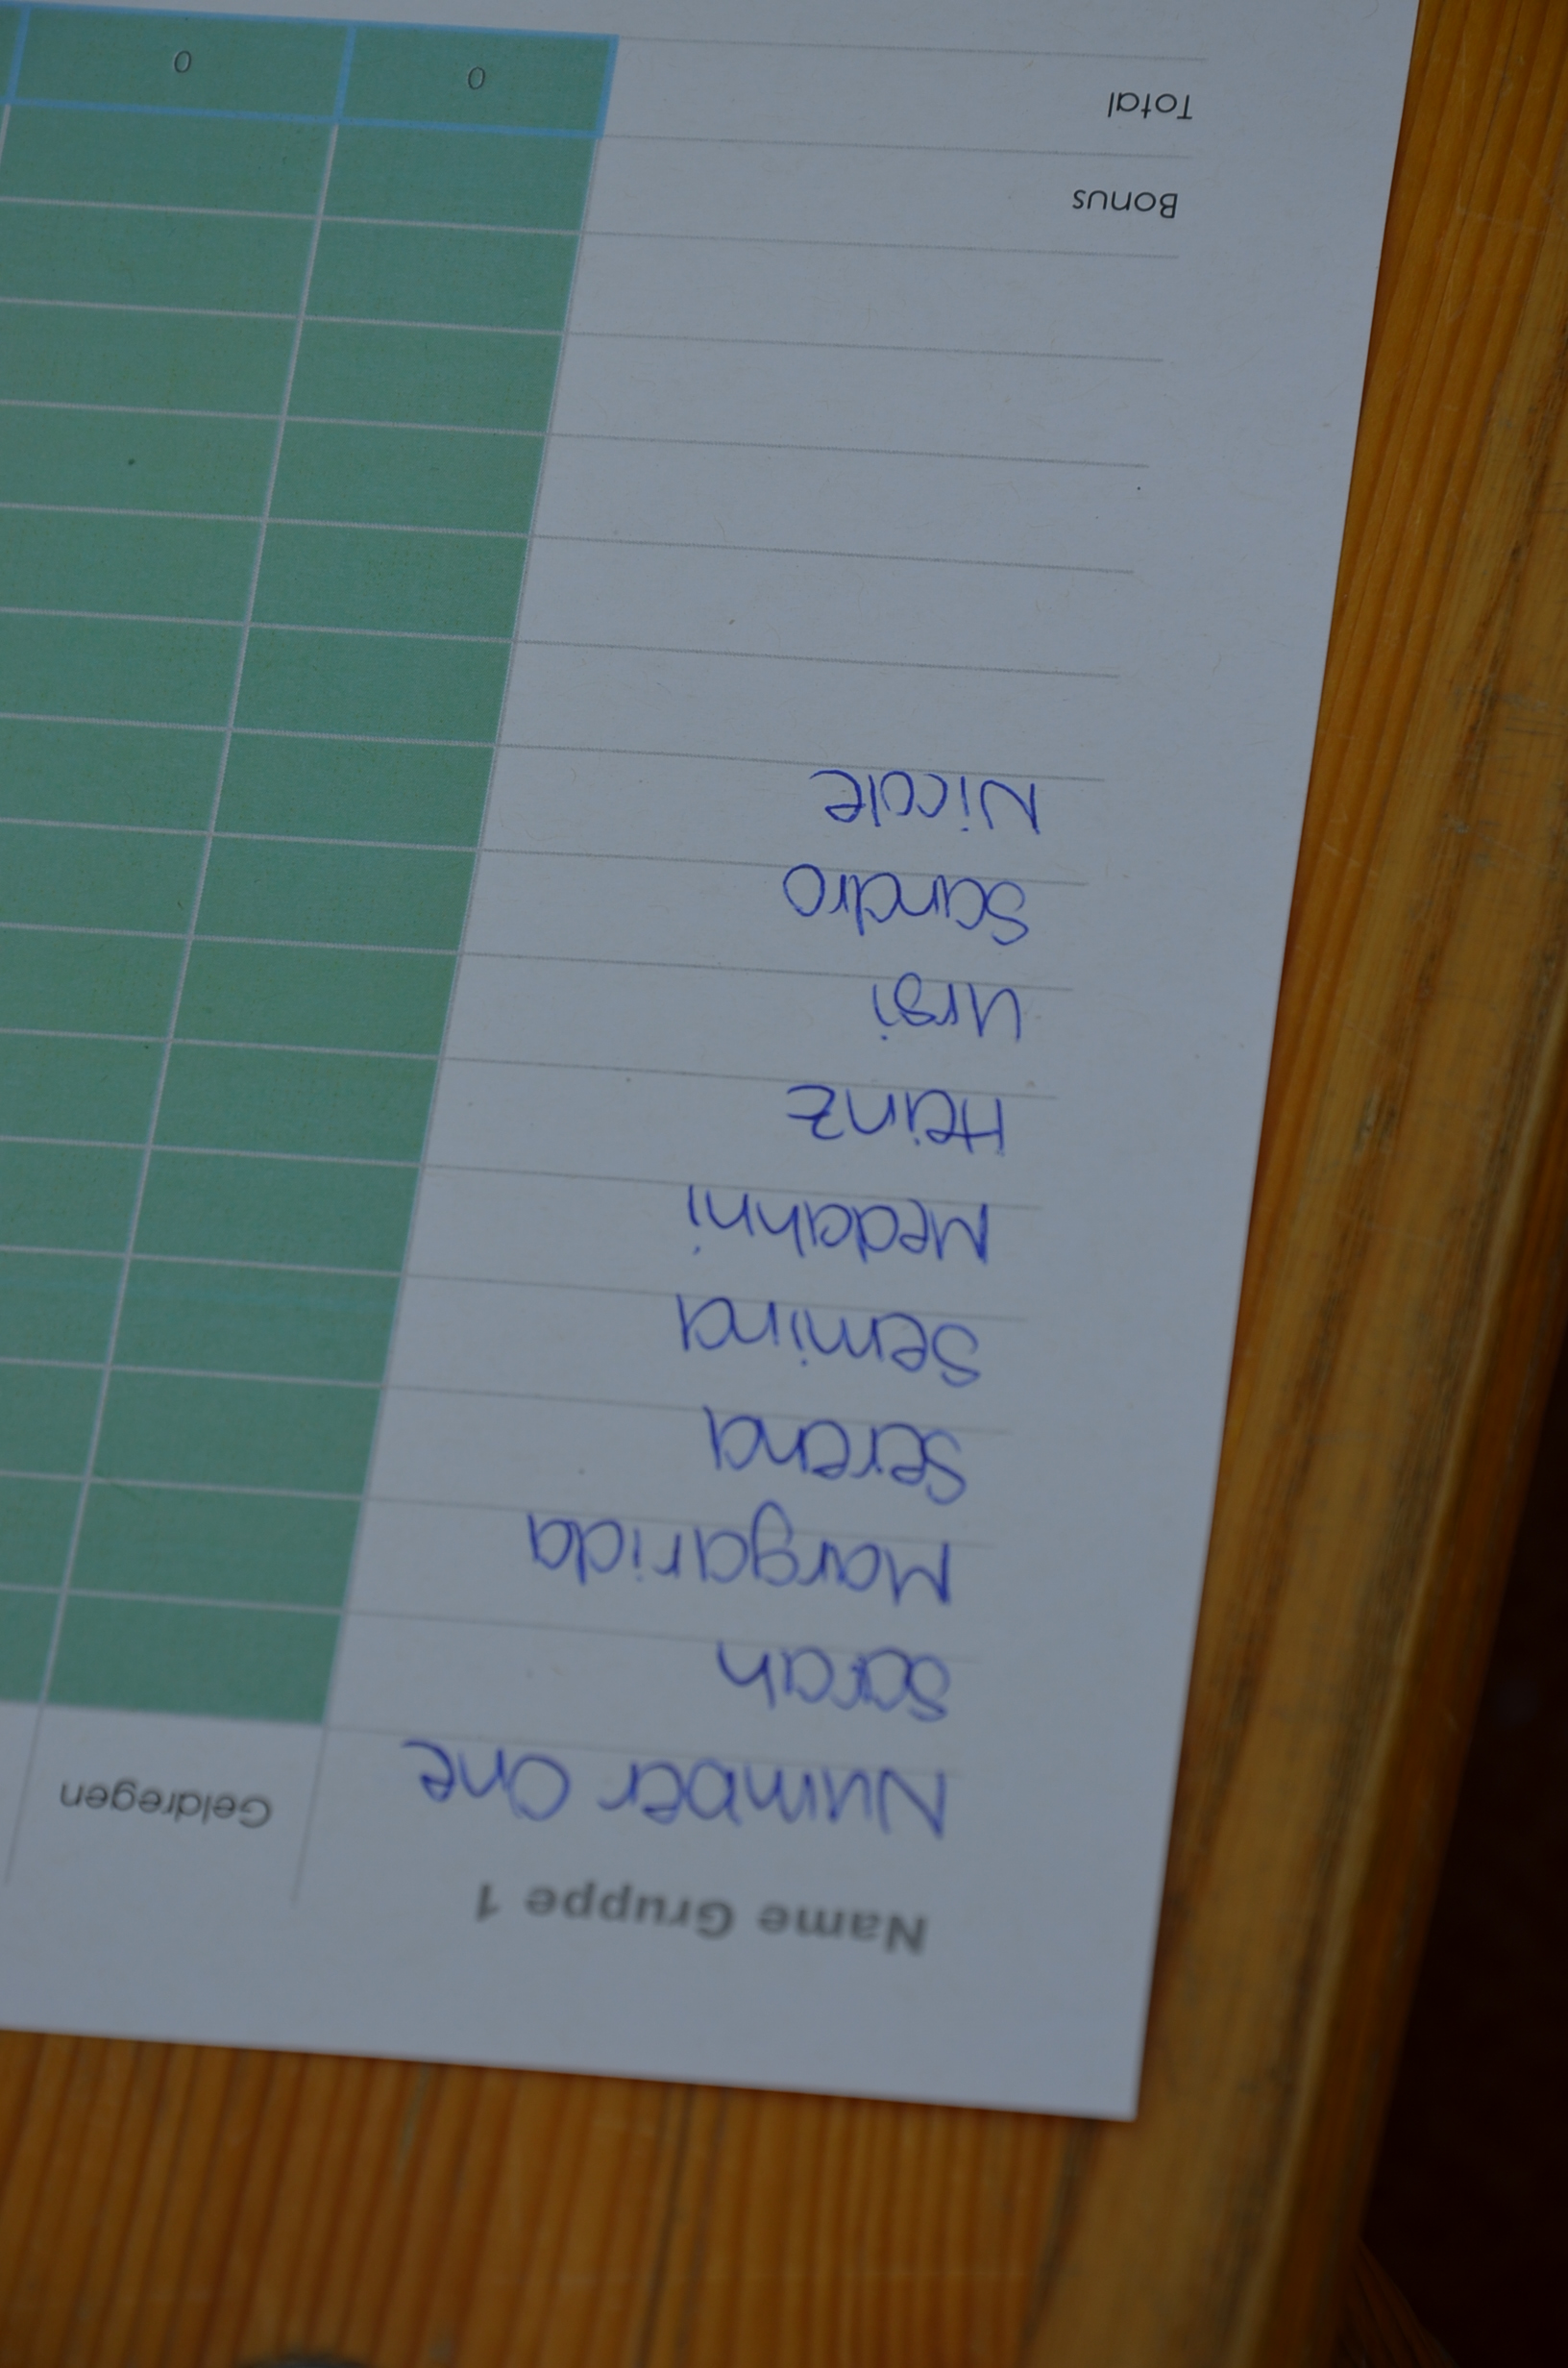 Name Gruppe 1
Number One
Geldregen
Sarah
Margarida
Serena
Semina
Medahni
Heinz
Ursi
Sandro
Nicole
Bonus
Total
0
0